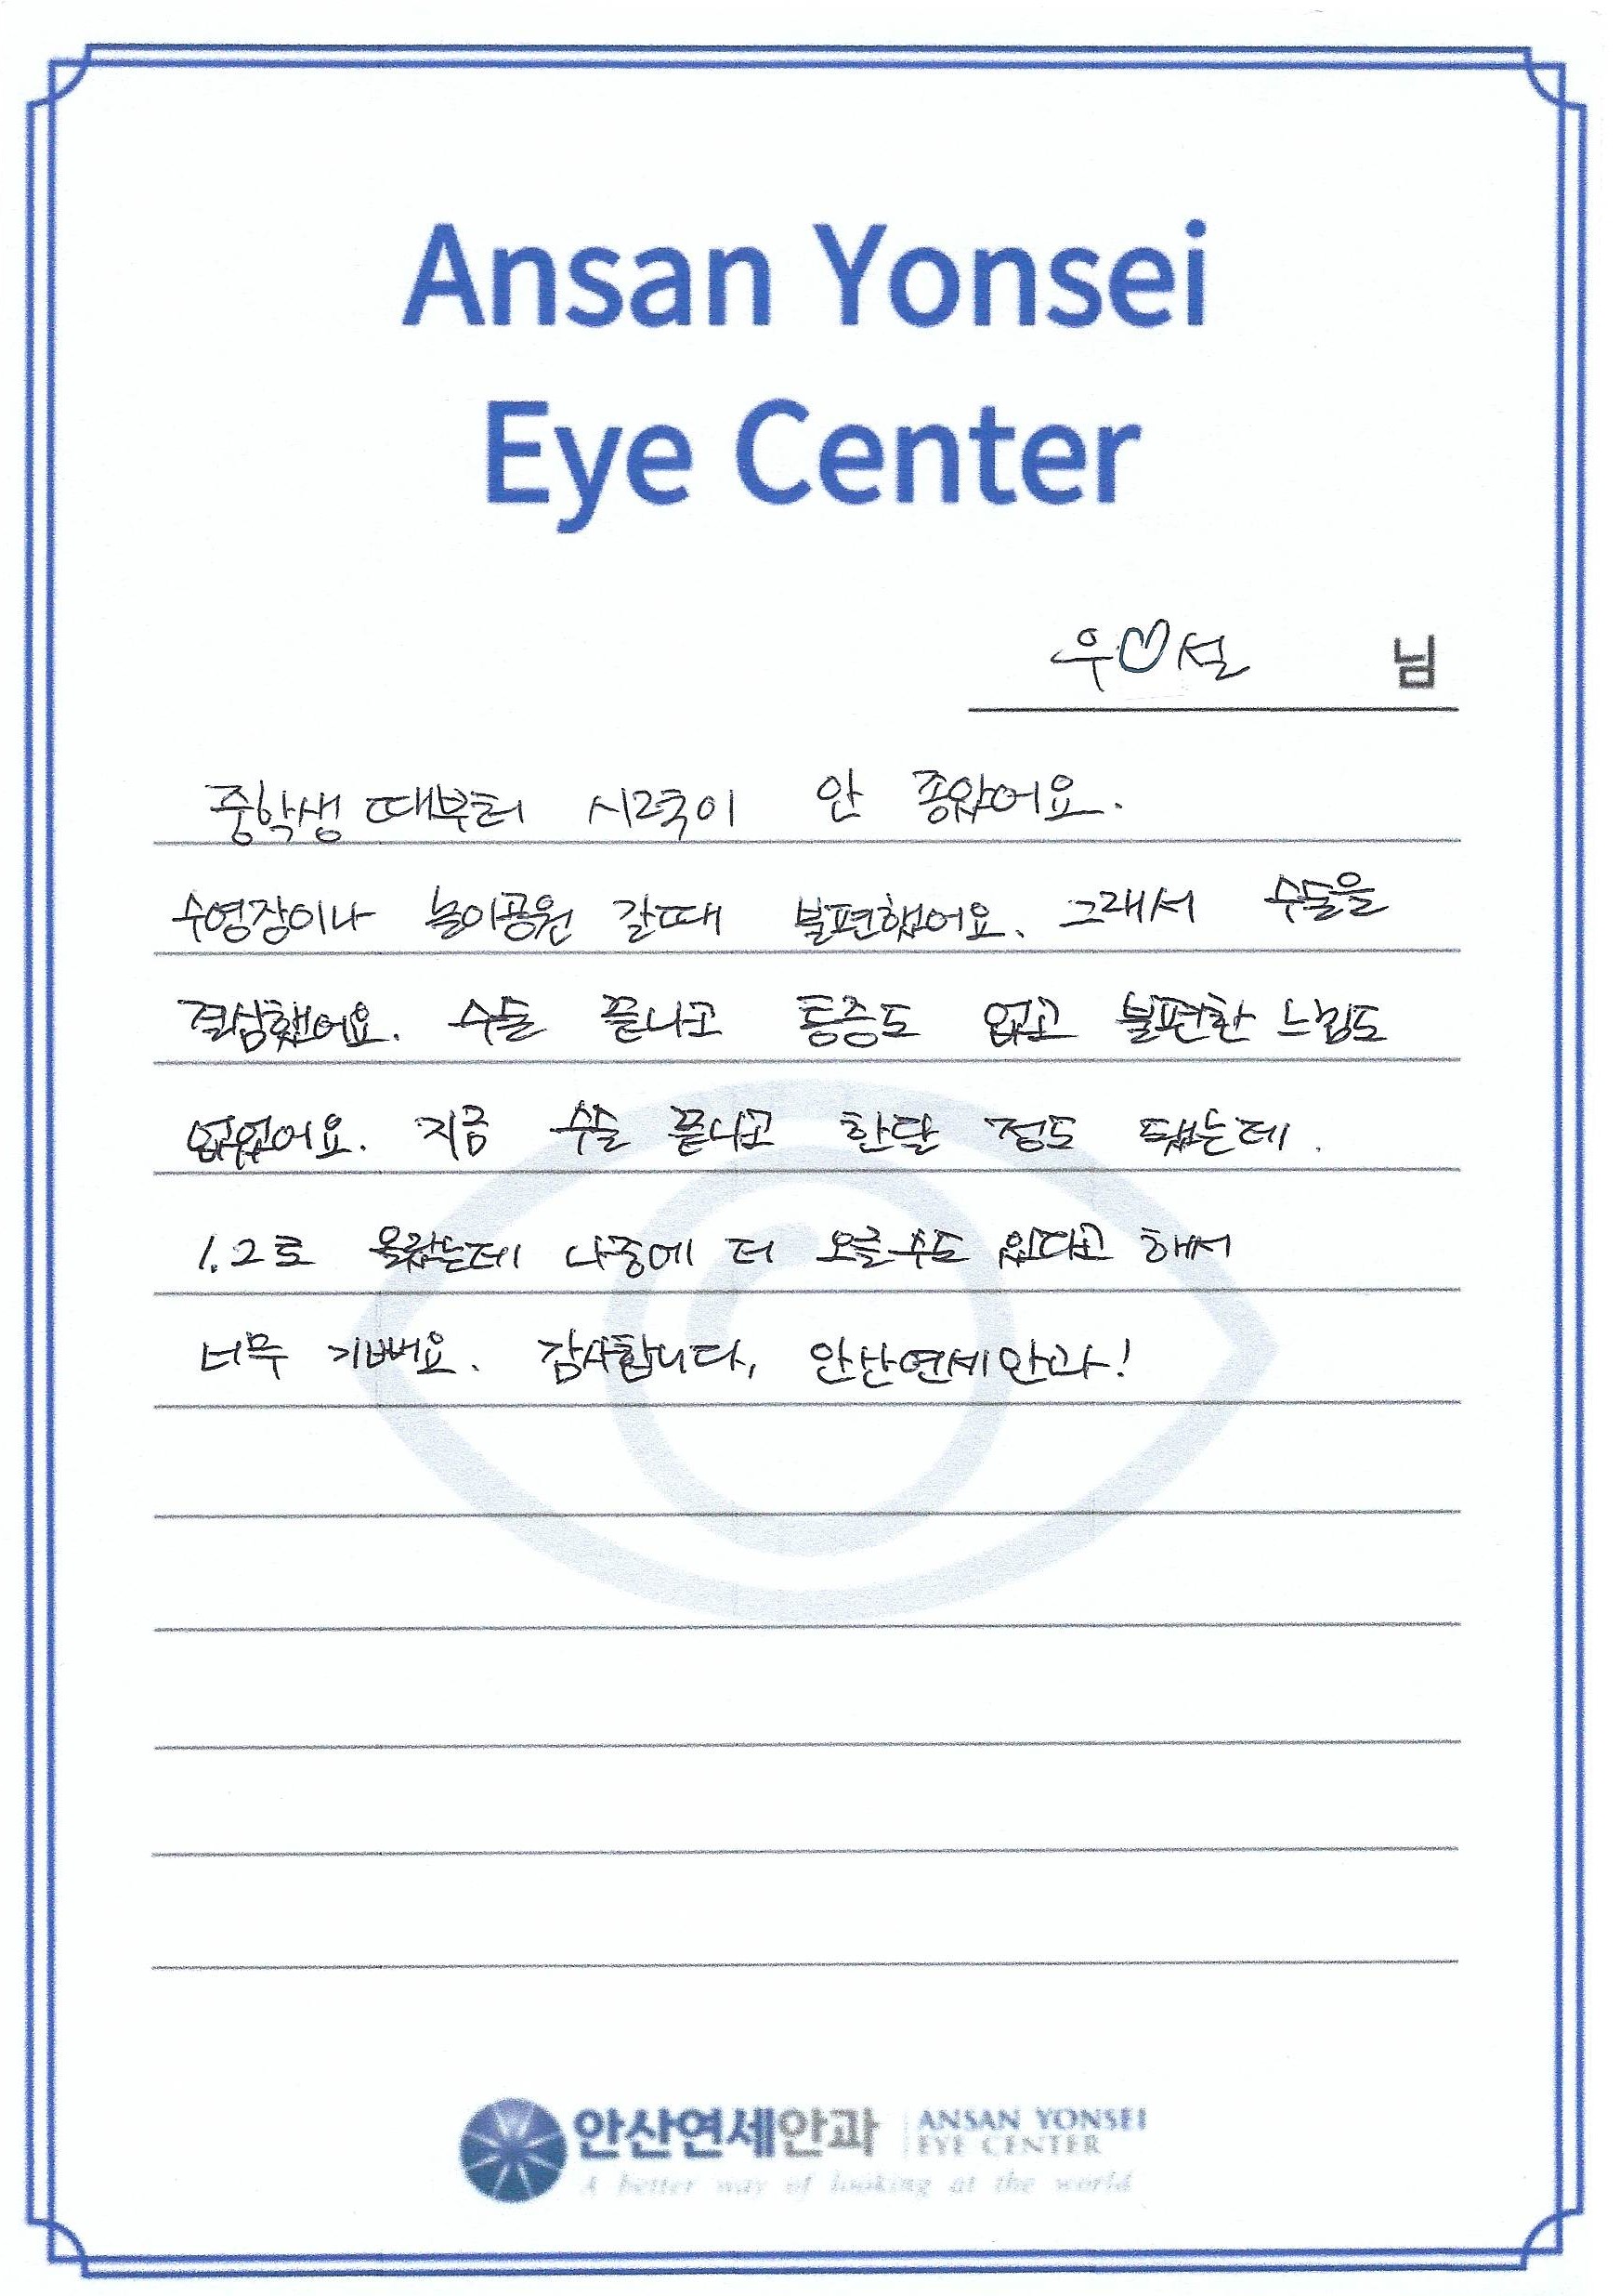 Ansan Yonsei
Eye Center
우♡설 님
중학생 때부터 시력이 안 좋았어요.
수영장이나 놀이공원 갈때 불편했어요. 그래서 수술을
결심했어요. 수술 끝나고 통증도 없고 불편한 느낌도
없었어요. 지금 수술 끝나고 한달 정도 됐는데.
1.2로 올랐는데 나중에 더 오를수도 있다고 해서
너무 기뻐요. 감사합니다, 안산연세안과!
안산연세안과 ANSAN YONSEI
EYE CENTER
A better way of looking at the world